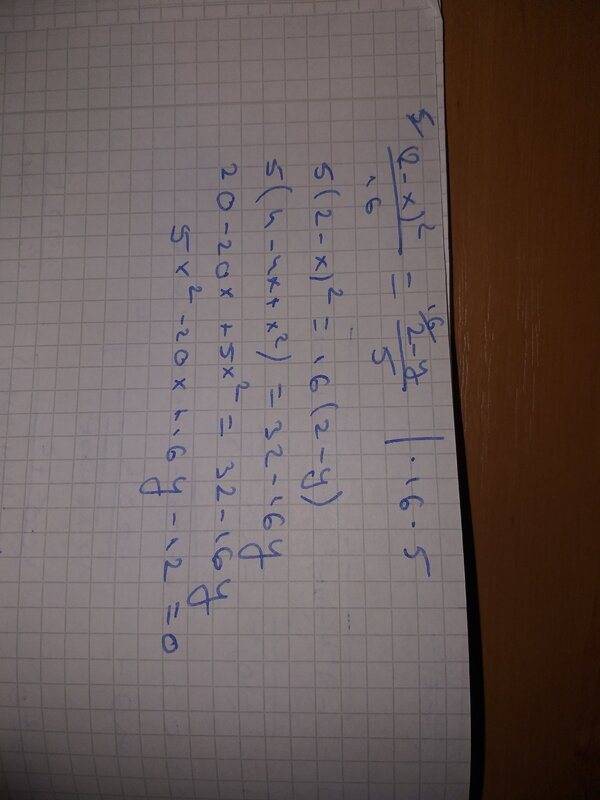 5/ (2-x)²/16 = 16/ (2-y)/5 | ·16·5
5(2-x)² = 16(2-y)
5(4-4x+x²) = 32-16y
20-20x+5x² = 32-16y
5x²-20x+16y-12=0